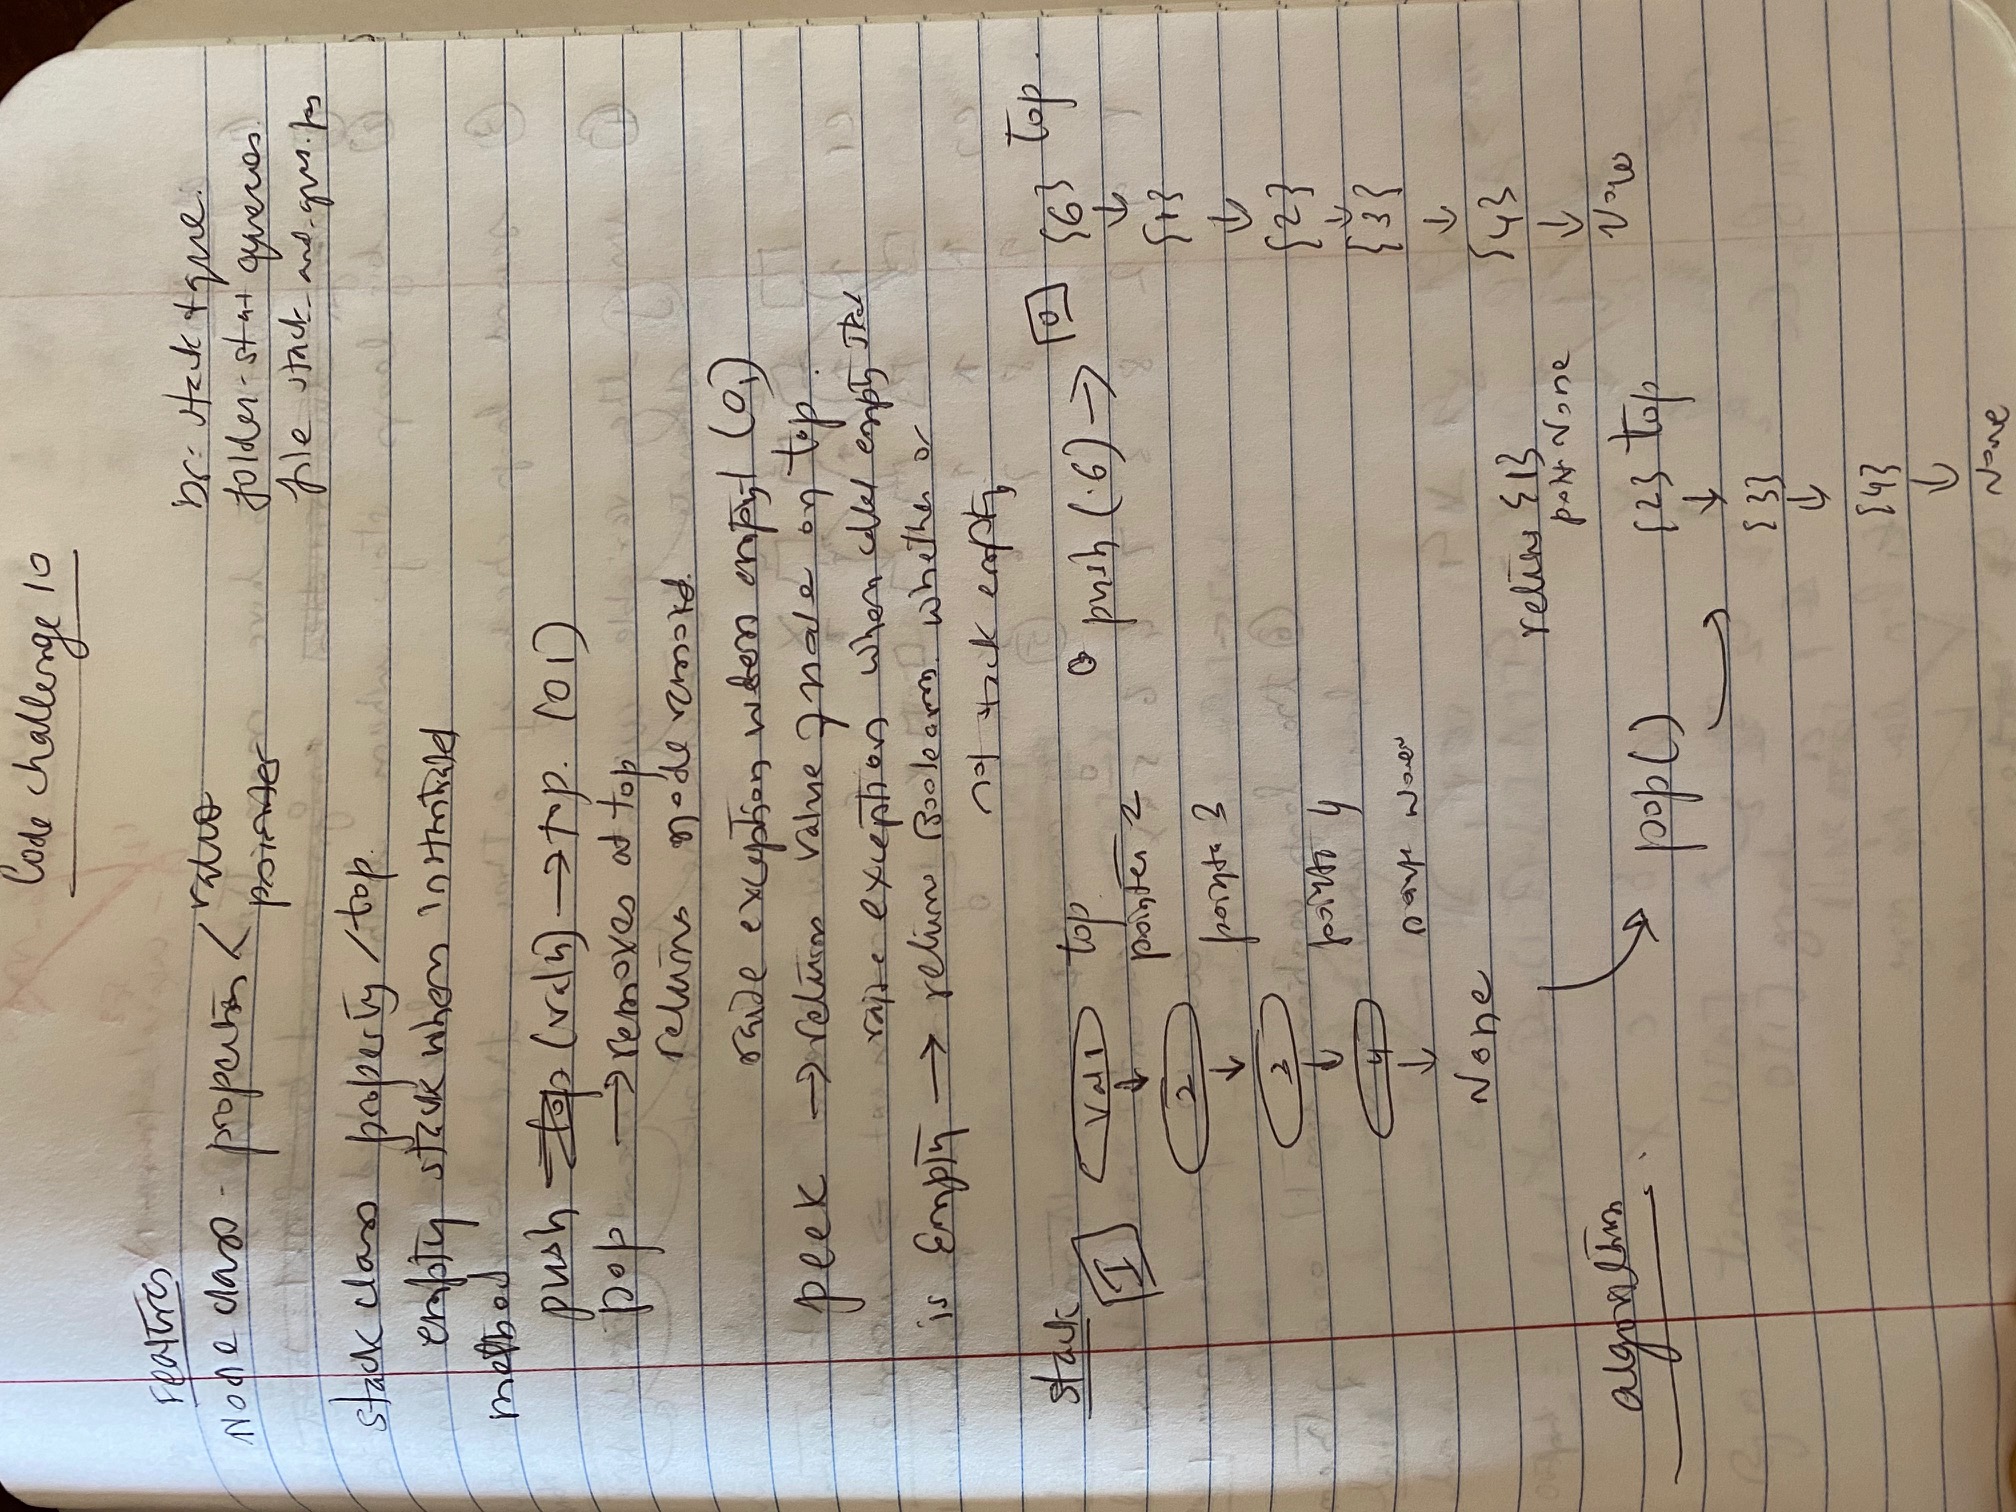 Code challenge 10
Features
Node class - properties < value
pointer
br: stack + que.
folder - st queues
file stack_and_que. py
stack class property / top.
empty stack when
method
push top (valu) → top. (O1)
pop → removes at top
returns node removed.
raise exception when empty (O1)
peek → return value of node on top.
raise exception when called empty stack
is Empty → return Boolean. whether or
not stack empty
stack
I Val 1 top
↓ pointer 2
2
↓ pointer 3
3
↓ pointer 4
4
↓
None
push (.6) → O {6} top.
↓
{1}
↓
{2}
↓
{3}
↓
{4}
↓
None
return {1}
point None
algorithm
pop() → {2} top
↓
{3}
↓
{4}
↓
None